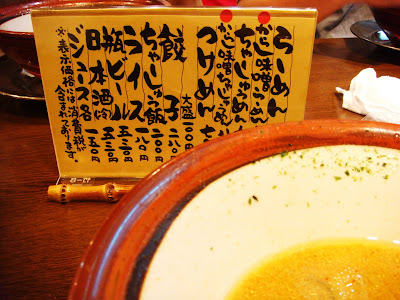 らーめん
からし味噌らーめん
ちゃーしゅーめん
からし味噌ちゃーしゅー
つけめん
大盛一〇〇円
餃子 二八〇円
ちゃーしゅう飯
ライス 一八〇円
瓶ビール 五三〇円
日本酒(冷) 五三〇円
ジュース各 一五〇円
※表示価格には、消費税が
含まれております。